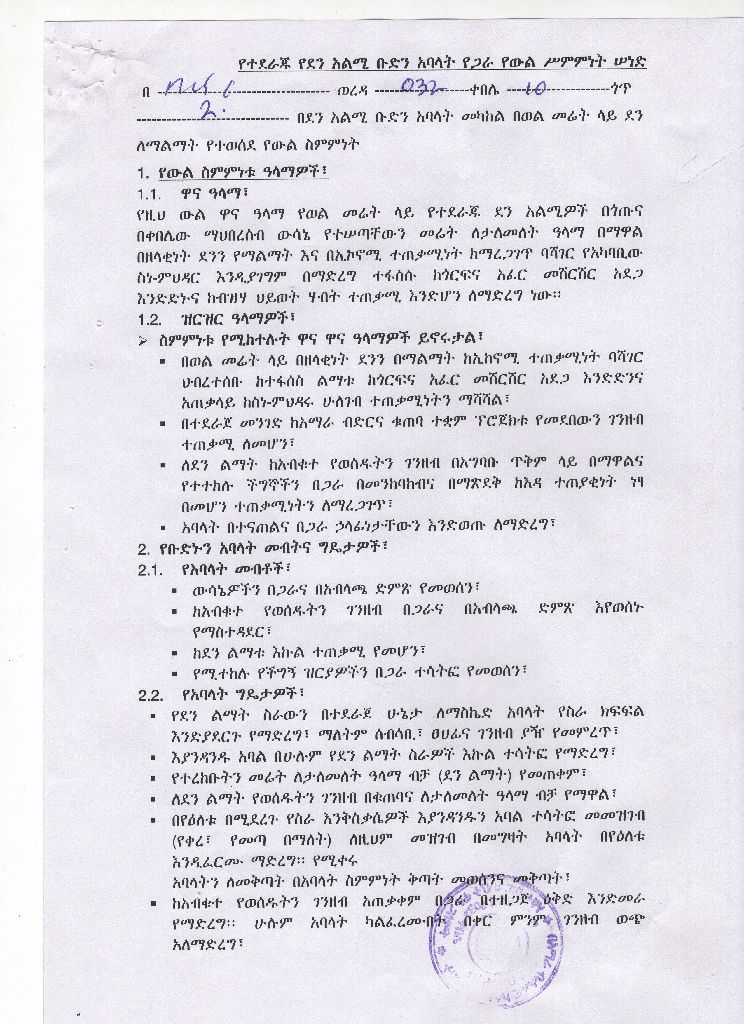 የተደራጁ የደን አልሚ ቡድን አባላት የጋራ የውል ሥምምነት ሠነድ
በ ---------- ወረዳ ---032---ቀበሌ ---10---ጎጥ
---2--- በደን አልሚ ቡድን አባላት መካከል በወል መሬት ላይ ደን
ለማልማት የተወሰደ የውል ስምምነት
1. የውል ስምምነቱ ዓላማዎች፣
1.1. ዋና ዓላማ፣
የዚህ ውል ዋና ዓላማ የወል መሬት ላይ የተደራጁ ደን አልሚዎች በጎጡና
በቀበሌው ማህበረሰብ ውሳኔ የተሠጣቸውን መሬት ለታለመለት ዓላማ በማዋል
በዘላቂነት ደንን የማልማት እና በኢኮኖሚ ተጠቃሚነት ከማረጋገጥ ባሻገር የአካባቢው
ስነ-ምህዳር እንዲያገግም በማድረግ ተፋሰሱ ከጎርፍና አፈር መሸርሸር አደጋ
እንድድኑና ከብዝሃ ህይወት ሃብት ተጠቃሚ እንድሆን ለማድረግ ነው።
1.2. ዝርዝር ዓላማዎች፣
➢ ስምምነቱ የሚከተሉት ዋና ዋና ዓላማዎች ይኖሩታል፣
▪ በወል መሬት ላይ በዘላቂነት ደንን በማልማት ከኢኮኖሚ ተጠቃሚነት ባሻገር
ህብረተሰቡ ከተፋሰስ ልማቱ ከጎርፍና አፈር መሸርሸር አደጋ እንድድንና
አጠቃላይ ከስነ-ምህዳሩ ሁለገብ ተጠቃሚነትን ማሻሻል፣
▪ በተደራጀ መንገድ ከአማራ ብድርና ቁጠባ ተቋም ፕሮጀክቱ የመደበውን ገንዘብ
ተጠቃሚ ለመሆን፣
▪ ለደን ልማት ከአብቁተ የወሰዱትን ገንዘብ በአግባቡ ጥቅም ላይ በማዋልና
የተተከሉ ችግኞችን በጋራ በመንከባከብና በማጽደቅ ከእዳ ተጠያቂነት ነፃ
በመሆን ተጠቃሚነትን ለማረጋገጥ፣
▪ አባላት በተናጠልና በጋራ ኃላፊነታቸውን እንድወጡ ለማድረግ፣
2. የቡድኑን አባላት መብትና ግዴታዎች፣
2.1. የአባላት መብቶች፣
▪ ውሳኔዎችን በጋራና በአብላጫ ድምጽ የመወሰን፣
▪ ከአብቁተ የወሰዱትን ገንዘብ በጋራና በአብላጫ ድምጽ እየወሰኑ
የማስተዳደር፣
▪ ከደን ልማቱ እኩል ተጠቃሚ የመሆን፣
▪ የሚተከሉ የችግኝ ዝርያዎችን በጋራ ተሳትፎ የመወሰን፣
2.2. የአባላት ግዴታዎች፣
▪ የደን ልማት ስራውን በተደራጀ ሁኔታ ለማስኬድ አባላት የስራ ክፍፍል
እንድያደርጉ የማድረግ፣ ማለትም ሰብሳቢ፣ ፀሀፊና ገንዘብ ያዥ የመምረጥ፣
▪ እያንዳንዱ አባል በሁሉም የደን ልማት ስራዎች እኩል ተሳትፎ የማድረግ፣
▪ የተረከቡትን መሬት ለታለመለት ዓላማ ብቻ (ደን ልማት) የመጠቀም፣
▪ ለደን ልማት የወሰዱትን ገንዘብ በቁጠባና ለታለመለት ዓላማ ብቻ የማዋል፣
▪ በየዕለቱ በሚደረጉ የስራ እንቅስቃሴዎች እያንዳንዱን አባል ተሳትፎ መመዝገብ
(የቀረ፣ የመጣ በማለት) ለዚህም መዝገብ በመግዛት አባላት በየዕለቱ
እንዲፈርሙ ማድረግ። የሚቀሩ
አባላትን ለመቅጣት በአባላት ስምምነት ቅጣት መወሰንና መቅጣት፣
▪ ከአብቁተ የወሰዱትን ገንዘብ አጠቃቀም በጋራ በተዘጋጀ ዕቅድ እንድመራ
የማድረግ። ሁሉም አባላት ካልፈረሙበት በቀር ምንም ገንዘብ ወጭ
አለማድረግ፣